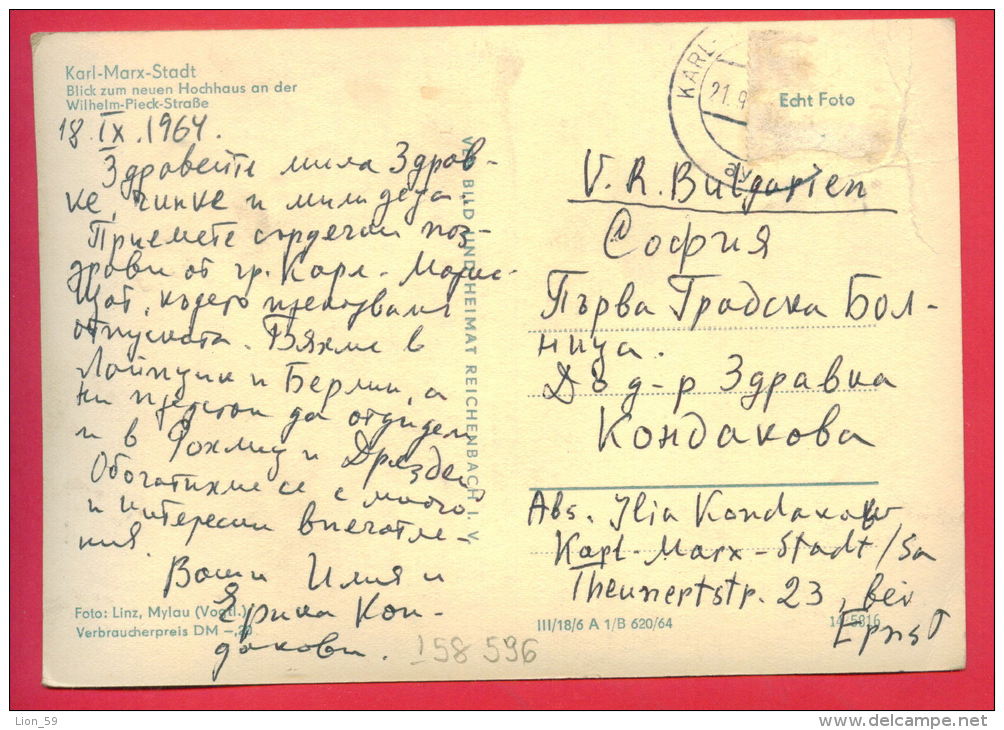 Karl-Marx-Stadt
Blick zum neuen Hochhaus an der
Wilhelm-Pieck-Straße
18.IX.1964.
Здравейте мила Здрав-
ке, чинке и мили деца.
Приемете сърдечни поз-
драви от гр. Карл-Маркс-
Щат, където прекарваме
отпуската. Бяхме в
Лайпциг и Берлин, а
ни предстои да отидем
и в Рохлиц и Дрезден
Обогатихме се с много
и интересни впечатле-
ния.
Ваши Илия и
Ерика Кон-
дакови.
Foto: Linz, Mylau (Vogtl.)
Verbraucherpreis DM -,20
158 596
VEB BILD UND HEIMAT REICHENBACH I. V.
KARL-
21.9
ay
Echt Foto
V. R. Bulgarien
София
Първа Градска Бол-
ница.
До д-р Здравка
Кондакова
Abs. Ilia Kondakow
Karl-Marx-Stadt/Sa
Theunertstr. 23, bei
Ернst
III/18/6 A 1/B 620/64
14-5916
Lion_59
www.delcampe.net